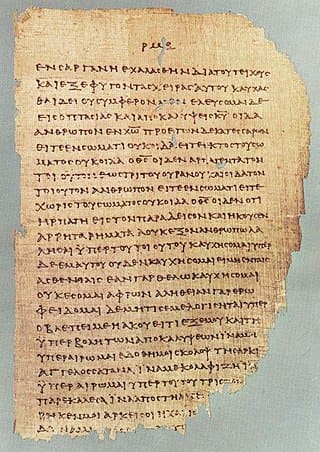 ΕΝϹΑΡΓΑΝΗΕΧΑΛΑϹΘΗΝΔΙΑΤΟΥΤΕΙΧΟΥϹ
ΚΑΙΕΞΕΦΥΓΟΝΤΑϹΧΕΙΡΑϹΑΥΤΟΥΚΑΥΧΑϹ
ΘΑΙΔΕΙΟΥϹΥΜΦΕΡΟΝΜΕΝΕΛΕΥϹΟΜΑΙΔΕ
ΕΙϹΟΠΤΑϹΙΑϹΚΑΙΑΠΟΚΑΛΥΨΕΙϹΚΥ̅ΟΙΔΑ
ΑΝΘΡΩΠΟΝΕΝΧΩ̅ΠΡΟΕΤΩΝΔΕΚΑΤΕϹϹΑΡΩΝ
ΕΙΤΕΕΝϹΩΜΑΤΙΟΥΚΟΙΔΑΕΙΤΕΕΚΤΟϹΤΟΥϹΩ
ΜΑΤΟϹΟΥΚΟΙΔΑΟΘϹ̅ΟΙΔΕΝΑΡΠΑΓΕΝΤΑΤΟΝ
ΤΟΙΟΥΤΟΝΕΩϹΤΡΙΤΟΥΟΥΡΑΝΟΥΚΑΙΟΙΔΑΤΟΝ
ΤΟΙΟΥΤΟΝΑΝΘΡΩΠΟΝΕΙΤΕΕΝϹΩΜΑΤΙΕΙΤΕ
ΧΩΡΙϹΤΟΥϹΩΜΑΤΟϹΟΥΚΟΙΔΑΟΘϹ̅ΟΙΔΕΝΟΤΙ
ΗΡΠΑΓΗΕΙϹΤΟΝΠΑΡΑΔΕΙϹΟΝΚΑΙΗΚΟΥϹΕΝ
ΑΡΡΗΤΑΡΗΜΑΤΑΑΟΥΚΕΞΟΝΑΝΘΡΩΠΩΛΑ
ΛΗϹΑΙΫΠΕΡΤΟΥΤΟΙΟΥΤΟΥΚΑΥΧΗϹΟΜΑΙΫΠΕΡ
ΔΕΕΜΑΥΤΟΥΟΥΔΕΝΚΑΥΧΗϹΟΜΑΙΕΙΜΗΕΝΤΑΙϹ
ΑϹΘΕΝΕΙΑΙϹΕΑΝΓΑΡΘΕΛΩΚΑΥΧΗϹΟΜΑΙ
ΟΥΚΕϹΟΜΑΙΑΦΡΩΝΑΛΗΘΕΙΑΝΓΑΡΕΡΩ
ΦΕΙΔΟΜΑΙΔΕΜΗΤΙϹΕΜΕΛΟΓΙϹΗΤΑΙΫΠΕΡ
ΟΒΛΕΠΕΙΜΕΗΑΚΟΥΕΙΤΙΕΞΕΜΟΥΚΑΙΤΗ
ΫΠΕΡΒΟΛΗΤΩΝΑΠΟΚΑΛΥΨΕΩΝΙΝΑΜΗ
ΫΠΕΡΑΙΡΩΜΑΙΕΔΟΘΗΜΟΙϹΚΟΛΟΨΤΗϹΑΡΚΙ
ΑΓΓΕΛΟϹϹΑΤΑΝΑΙΝΑΜΕΚΟΛΑΦΙΖΗΙΝ
ΫΠΕΡΑΙΡΩΜΑΙΫΠΕΡΤΟΥΤΟΥΤΡΙϹΤΟΝ
ΠΑΡΕΚΑΛΕϹΑΙΝΑΑΠΟϹΤΗ
ΡΗΚΕΝΜΟΙΑΡΚΕΙϹΟΙΗΧΑΡΙϹ